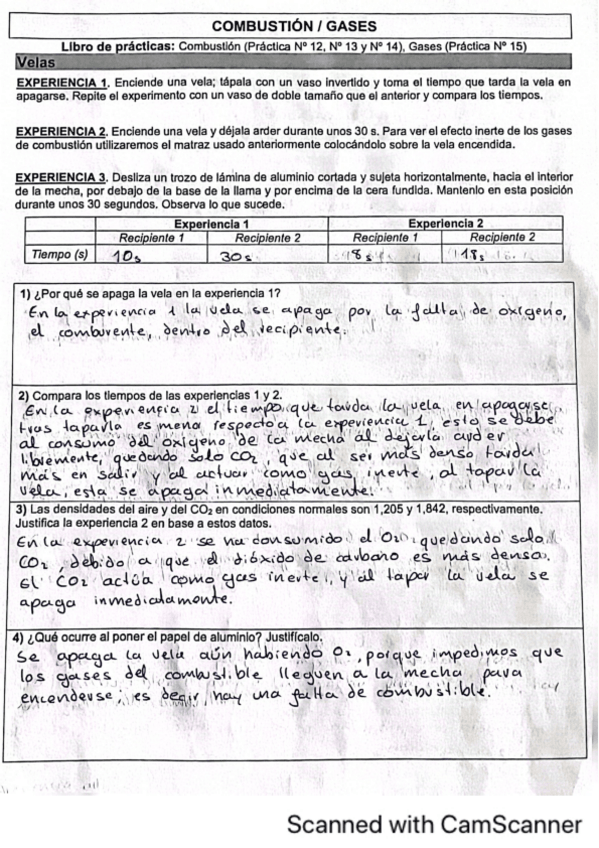 COMBUSTIÓN / GASES
Libro de prácticas: Combustión (Práctica Nº 12, Nº 13 y Nº 14), Gases (Práctica Nº 15)
Velas
EXPERIENCIA 1. Enciende una vela; tápala con un vaso invertido y toma el tiempo que tarda la vela en
apagarse. Repite el experimento con un vaso de doble tamaño que el anterior y compara los tiempos.
EXPERIENCIA 2. Enciende una vela y déjala arder durante unos 30 s. Para ver el efecto inerte de los gases
de combustión utilizaremos el matraz usado anteriormente colocándolo sobre la vela encendida.
EXPERIENCIA 3. Desliza un trozo de lámina de aluminio cortada y sujeta horizontalmente, hacia el interior
de la mecha, por debajo de la base de la llama y por encima de la cera fundida. Mantenlo en esta posición
durante unos 30 segundos. Observa lo que sucede.
Experiencia 1 Experiencia 2
Recipiente 1 Recipiente 2 Recipiente 1 Recipiente 2
Tiempo (s) 10s 30s 8s 18s
1) ¿Por qué se apaga la vela en la experiencia 1?
En la experiencia 1 la vela se apaga por la falta de oxígeno,
el comburente, dentro del recipiente.
2) Compara los tiempos de las experiencias 1 y 2.
En la experiencia 2 el tiempo que tarda la vela en apagarse
tras taparla es meno respecto a la experiencia 1, esto se debe
al consumo del oxígeno de la mecha al dejarla arder
libremente, quedando solo CO2, que al ser más denso tarda
más en salir y al actuar como gas inerte, al tapar la
vela, esta se apaga inmediatamente.
3) Las densidades del aire y del CO2 en condiciones normales son 1,205 y 1,842, respectivamente.
Justifica la experiencia 2 en base a estos datos.
En la experiencia 2 se ha consumido el O2, quedando solo
CO2, debido a que el dióxido de carbono es más denso.
El CO2 actúa como gas inerte, y al tapar la vela se
apaga inmediatamente.
4) ¿Qué ocurre al poner el papel de aluminio? Justifícalo.
Se apaga la vela aún habiendo O2, porque impedimos que
los gases del combustible lleguen a la mecha para
encenderse, es decir, hay una falta de combustible.
Scanned with CamScanner